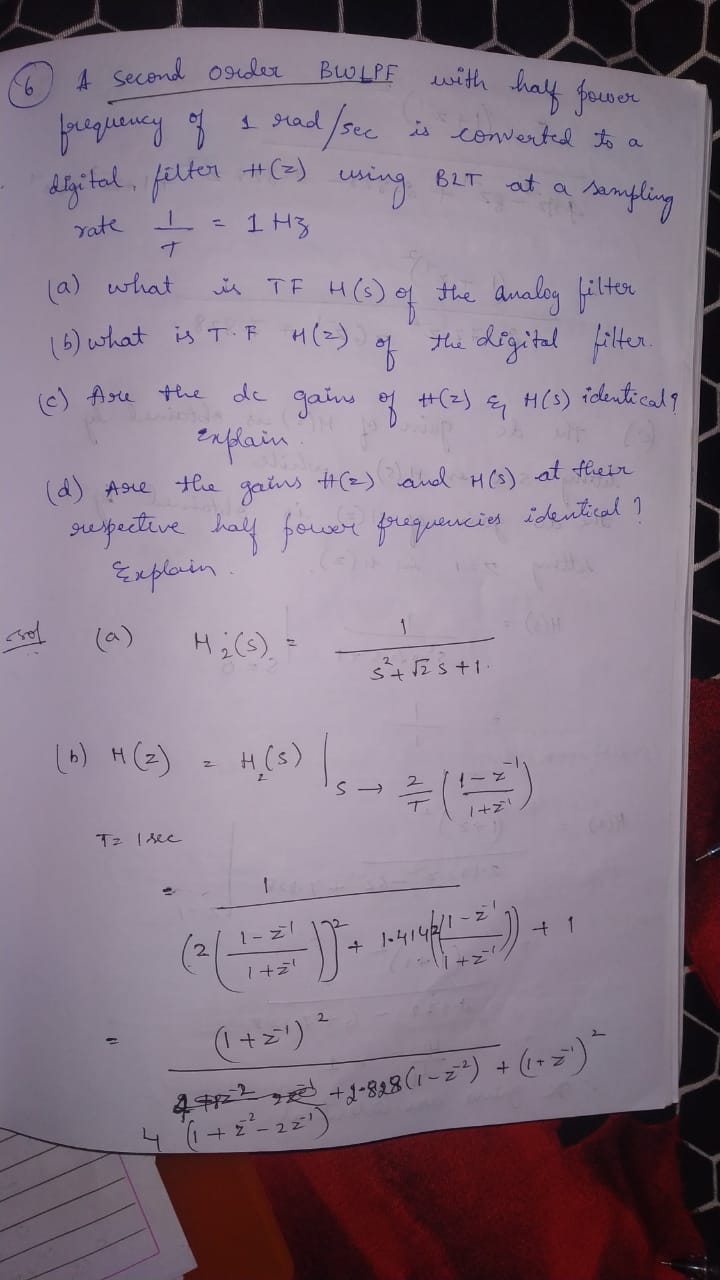 (6) A second order BWLPF with half power
frequency of 1 rad/sec is converted to a
digital filter H(z) using BLT at a sampling
rate 1/T = 1 Hz
(a) what is TF H(s) of the analog filter
(b) what is T.F H(z) of the digital filter.
(c) Are the dc gains of H(z) & H(s) identical?
Explain.
(d) Are the gains H(z) and H(s) at their
respective half power frequencies identical?
Explain.
sol (a) H₂(s) = 1/(s² + √2 s + 1).
(b) H(z) = H₂(s) | s → 2/T ((1 - z⁻¹)/(1 + z⁻¹))
T = 1 sec
= 1/((2((1 - z⁻¹)/(1 + z⁻¹)))² + 1.414(2((1 - z⁻¹)/(1 + z⁻¹))) + 1
= (1 + z⁻¹)²/
+ 2.828(1 - z⁻²) + (1 + z⁻¹)²
4 (1 + z⁻² - 2z⁻¹)